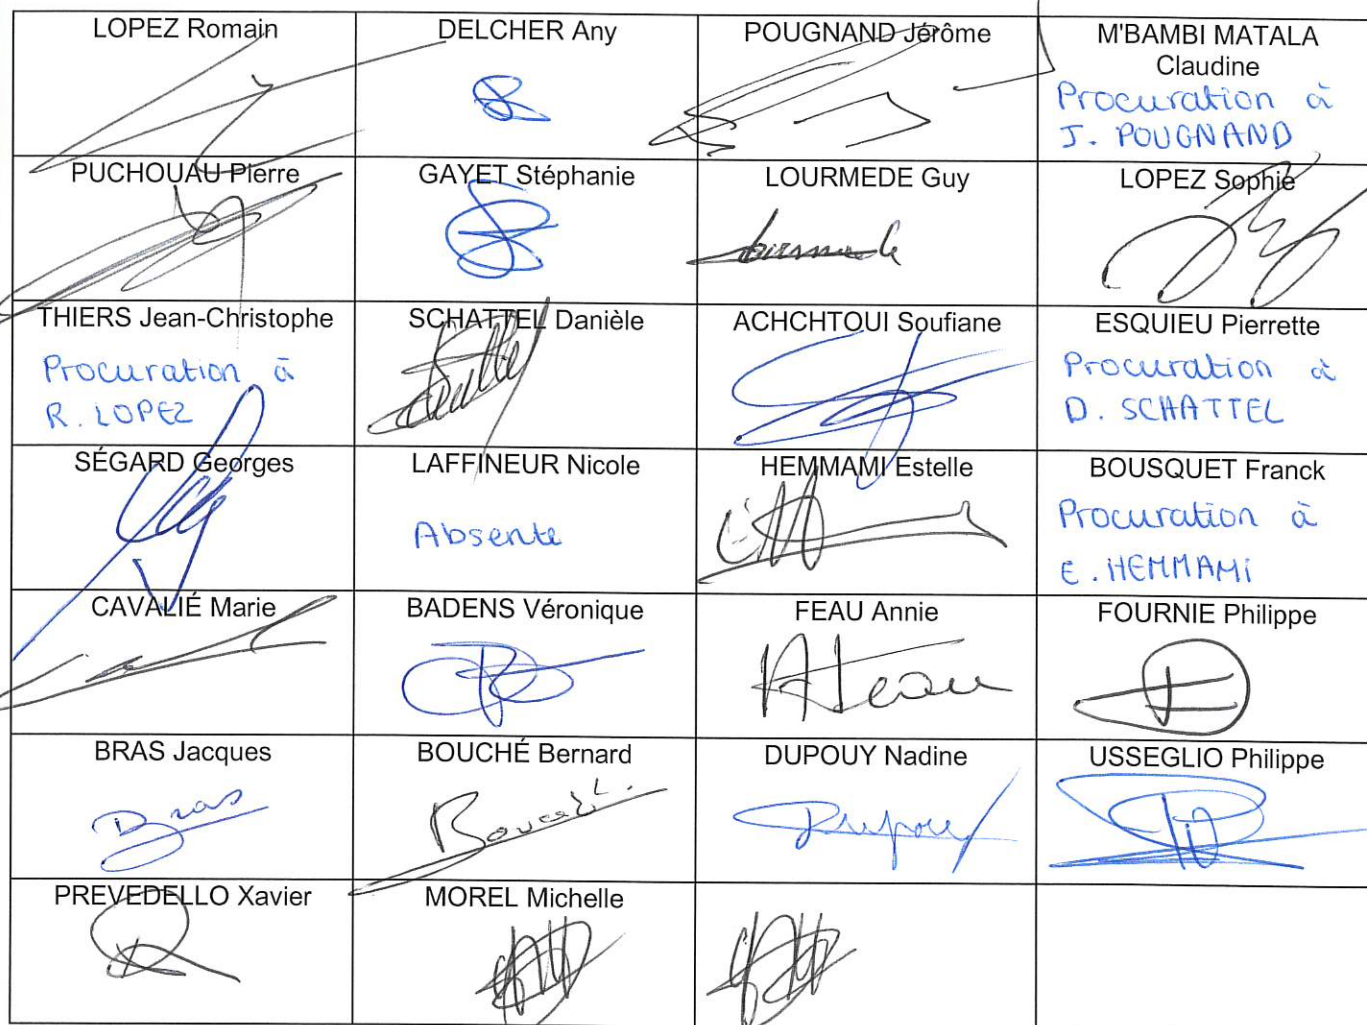 LOPEZ Romain
DELCHER Any
POUGNAND Jérôme
M'BAMBI MATALA
Claudine
Procuration à
J. POUGNAND
PUCHOUAU Pierre
GAYET Stéphanie
LOURMEDE Guy
LOPEZ Sophie
THIERS Jean-Christophe
Procuration à
R. LOPEZ
SCHATTEL Danièle
ACHCHTOUI Soufiane
ESQUIEU Pierrette
Procuration à
D. SCHATTEL
SÉGARD Georges
LAFFINEUR Nicole
Absente
HEMMAMI Estelle
BOUSQUET Franck
Procuration à
E. HEMMAMI
CAVALIÉ Marie
BADENS Véronique
FEAU Annie
FOURNIE Philippe
BRAS Jacques
Bras
BOUCHÉ Bernard
DUPOUY Nadine
Dupouy
USSEGLIO Philippe
PREVEDELLO Xavier
MOREL Michelle